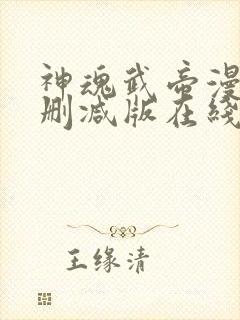 神魂武帝漫
删减版在线
王缘清